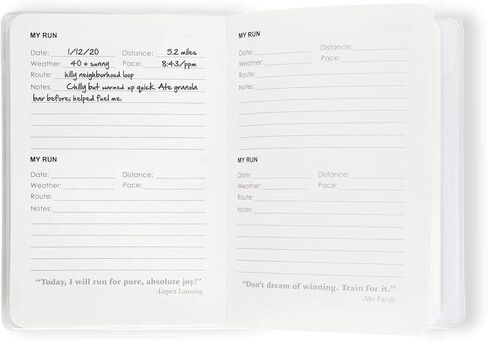 MY RUN
Date: 1/12/20 Distance: 5.2 miles
Weather: 40 + sunny Pace: 8:43/ppm
Route: hilly neighborhood loop
Notes: Chilly but warmed up quick. Ate granola
bar before; helped fuel me.
MY RUN
Date: Distance:
Weather: Pace:
Route:
Notes:
"Today, I will run for pure, absolute joy!"
-Lopez Lamong
MY RUN
Date: Distance:
Weather: Pace:
Route:
Notes:
MY RUN
Date: Distance:
Weather: Pace:
Route:
Notes:
"Don't dream of winning. Train for it."
-Mo Farah